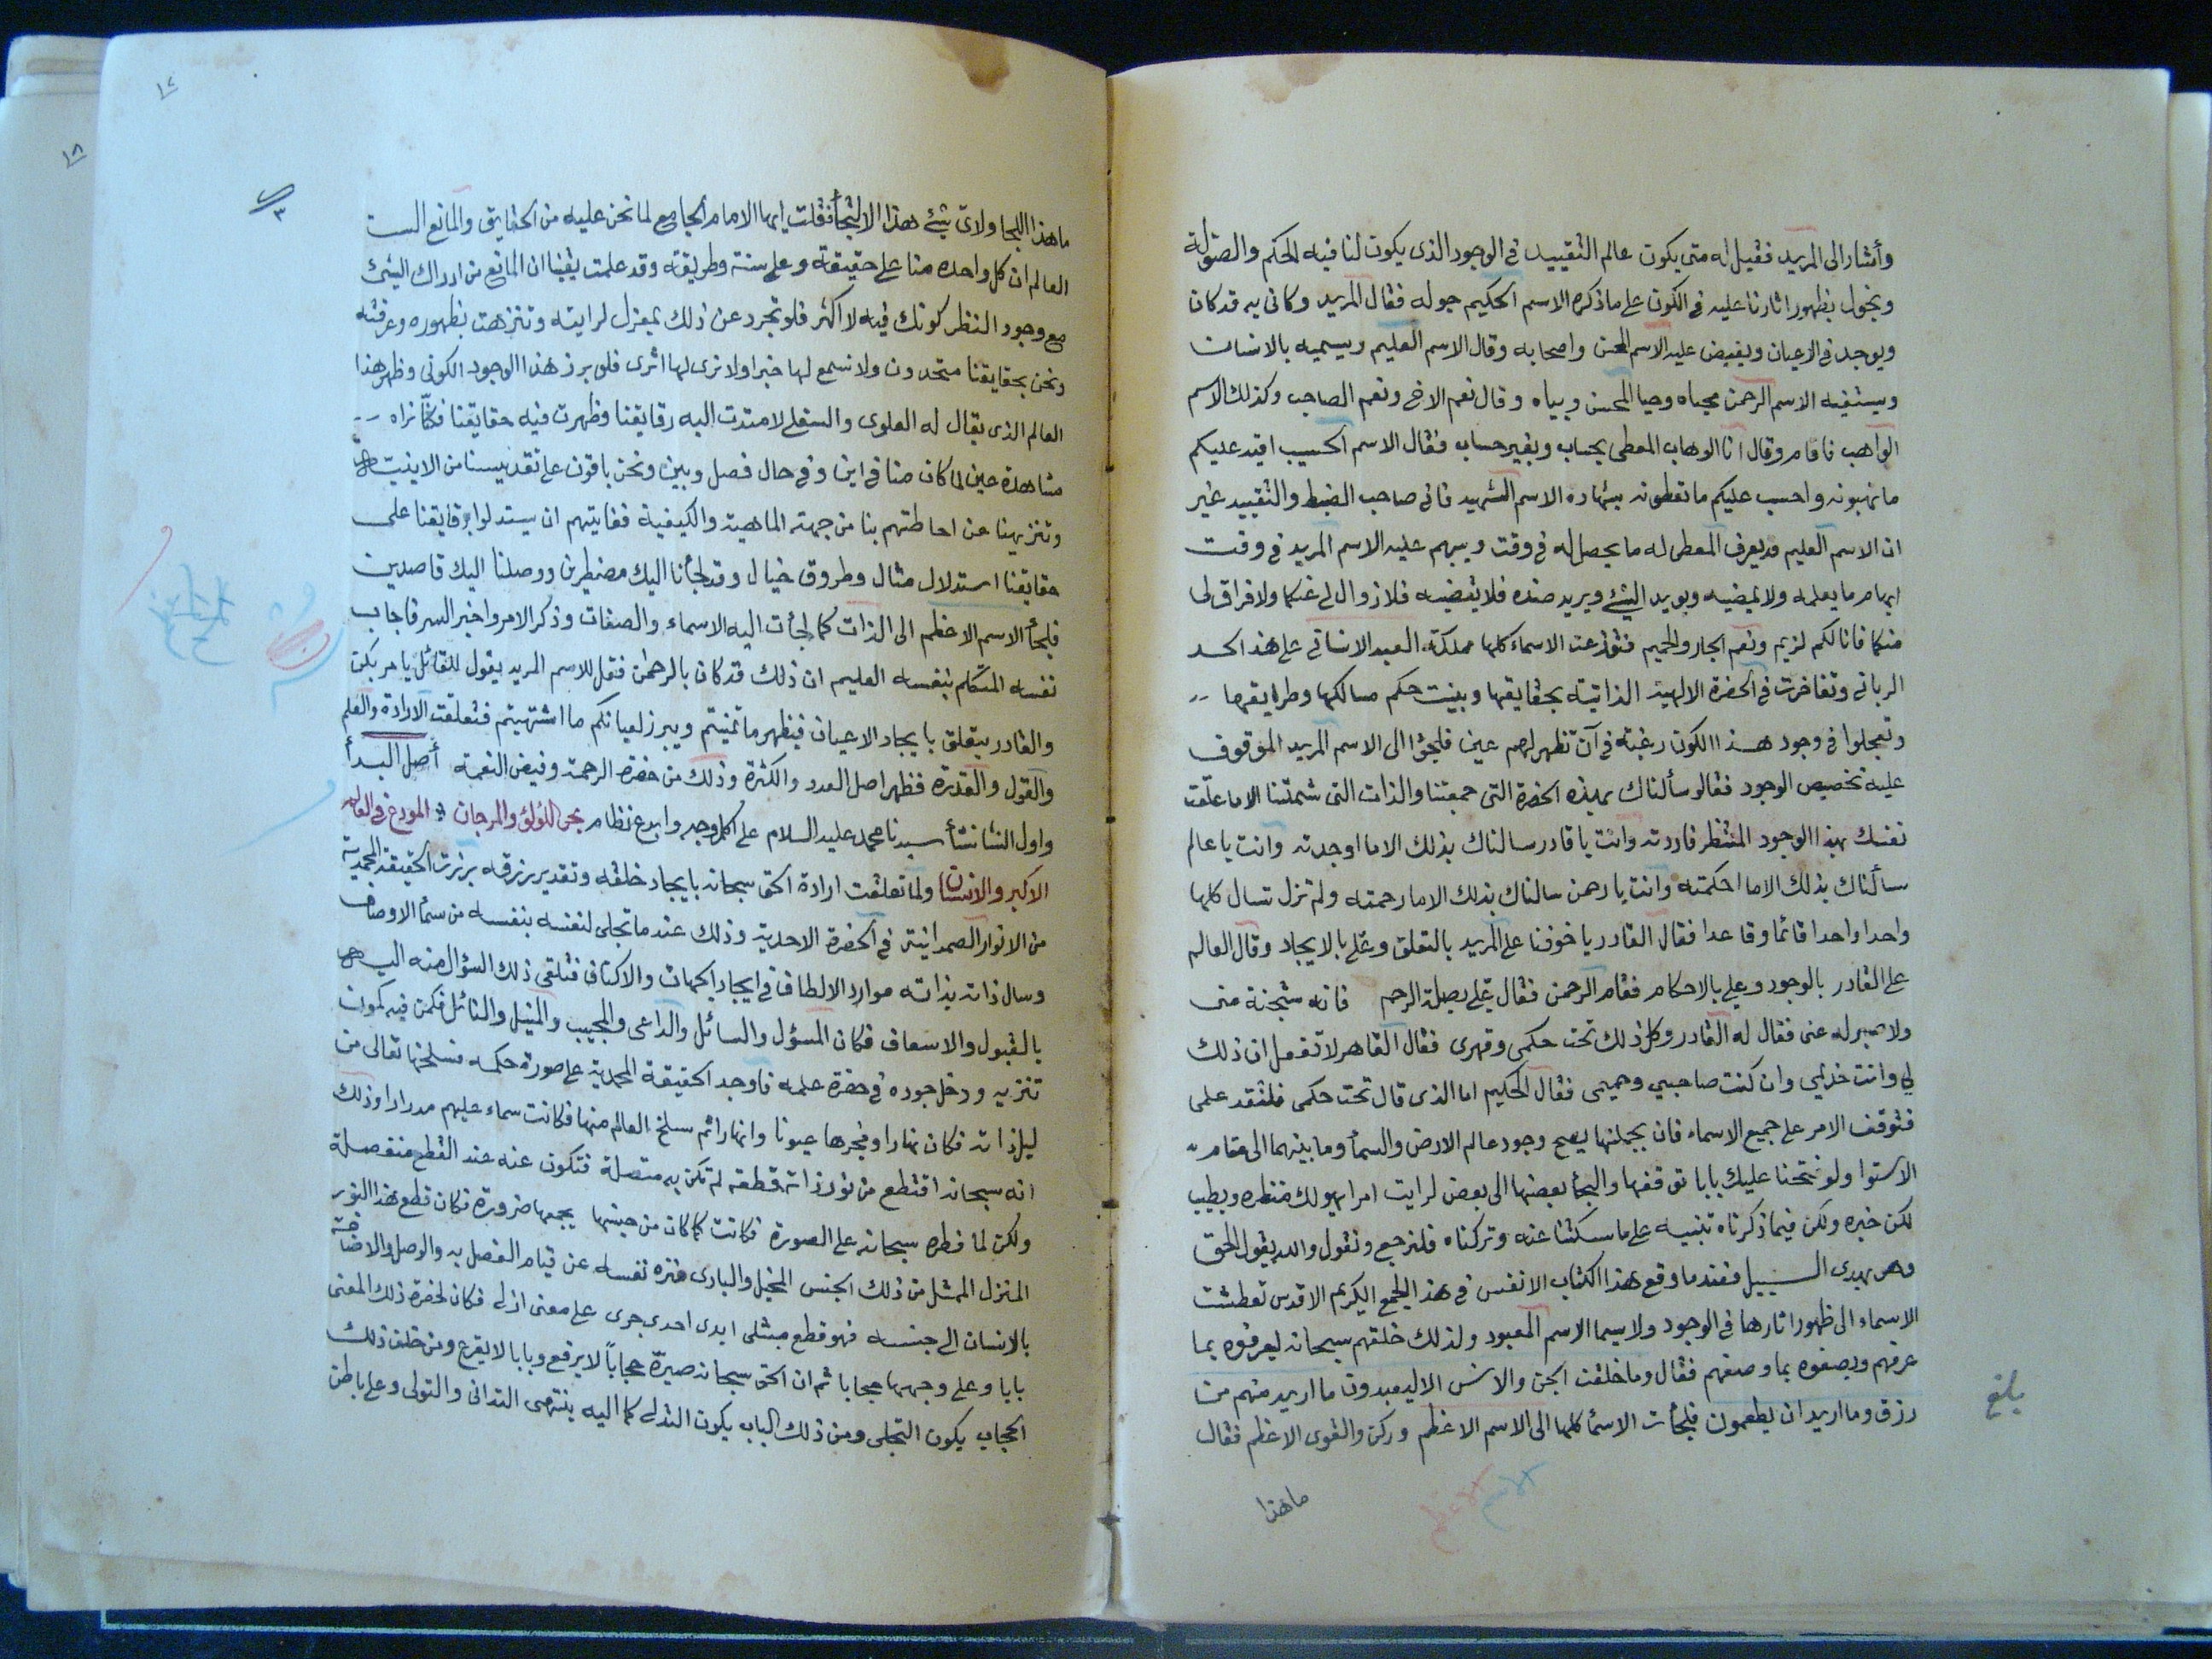 وأشار الى المريد فقيل له متى يكون عالم التقييد في الوجود الذى يكون لنا فيه الحكم والصولة
ونجول بظهور اثارنا عليه في الكون على ما ذكره الاسم الحكيم جوله فقال المريد وكانى به قد كان
ويوجد في الاعيان ويفيض عليه الاسم المحسن واصحابه وقال الاسم العليم ويسميه بالانسان
ويستفيه الاسم الرحمن محياه وحيا المحسن وبياه وقال نعم الاخ ونعم الصاحب وكذلك الاسم
الواهب فاقام وقال انا الوهاب المعطى بحساب وبغير حساب فقال الاسم الحسيب اقيد عليكم
ما تهبونه واحسب عليكم ما تعطونه بشهاده الاسم الشهيد فانى صاحب الضبط والتقييد غير
ان الاسم العليم قد يعرف المعطى له ما يحصل له في وقت ويبهم عليه الاسم المريد في وقت
ابهام ما يعلمه ولا يمضيه ويريد الشئ ويريد ضده فلا يقضيه فلا زوال لى عنكما ولا فراق لى
منكما فانا لكم لزيم ونعم الجار والحميم فتوزعت الاسماء كلها مملكة العبد الانسانى على هذ الحد
الربانى وتفاخرت في الحضرة الالهية الذاتية بحقايقها وبينت حكم مسالكها وطرايقها
وتعجلوا في وجود هذا الكون رغبة في آن تظهر لهم عين فلجؤا الى الاسم المريد الموقوف
عليه تخصيص الوجود فقالو سألناك بهذه الحضرة التى جمعتنا والذات التى شملتنا الا ما علقت
نفسك بهذا الوجود المنتظر فاردته وانت يا قادر سالناك بذلك الا ما اوجدته وانت يا عالم
سألناك بذلك الا ما احكمته وانت يا رحمن سالناك بذلك الا ما رحمته ولم تزل تسال كلها
واحدا واحدا قائما وقاعدا فقال القادر يا خوفنا على المريد بالتعلق وعلي بالايجاد وقال العالم
على القادر بالوجود وعلي بالاحكام فقام الرحمن فقال علي بصلة الرحم فانه شجنة منى
ولا صبر له عنى فقال له القادر وكل ذلك تحت حكمى وقهرى فقال القاهر لا تفعل ان ذلك
لي وانت خديمى وان كنت صاحبي وحميمى فقال الحكيم اما الذى قال تحت حكمى فلنقد علمى
فتوقف الامر على جميع الاسماء فان بجملتها يصح وجود عالم الارض والسمأ وما بينهما الى مقام
الاستوا ولو فتحنا عليك بابا توقفها والتجأ بعضها الى بعض لرايت امرا يهولك منظره ويطيب
لكن خبره ولكن فيما ذكرناه تنبيه على ما سكتنا عنه وتركناه فلنرجع ونقول والله يقول الحق
وهو يهدى السبيل فعندما وقع هذا الكتاب الانفس في هذ الجمع الكريم الاقدس تعطشت
الاسماء الى ظهور اثارها في الوجود ولا سيما الاسم المعبود ولذلك خلقهم سبحانه ليعرفوه بما
عرفهم ويصفوه بما وصفهم فقال وما خلقت الجن والانس الا ليعبدون ما اريد منهم من
رزق وما اريد ان يطعمون فلجأت الاسمأ كلها الى الاسم الاعظم وركن والقوى الاعظم فقال
بلغ
ما هذا
الاسم الاعظم
١٧
١٨
٣
ما هذا اللجا ولاى شئ هذا الالتجأ فقلت ايها الامام الجامع لما نحن عليه من الحقايق والمانع الست
العالم ان كل واحده منا على حقيقة وعلى سنة وطريقة وقد علمت يقينا ان المانع من ادراك الشئ
مع وجود النظر كونك فيه لا اكثر فلو تجرد عن ذلك بمعزل لرايته وتنزهت بظهوره وعرفته
ونحن بحقايقنا متحدون ولا نسمع لها خبرا ولا نرى لها اثرى فلو برز هذا الوجود الكونى وظهر هذا
العالم الذى يقال له العلوى والسفلى لامتدت اليه رقايقنا وظهرت فيه حقايقنا فكنّا نراه
مشاهدة عين لما كان منا في اين وفي حال فصل وبين ونحن باقون على تقديسنا من الاينيت
وتنزيهنا عن احاطتهم بنا من جهة الماهية والكيفية فغايتهم ان يستدلوا برقايقنا على
حقايقنا استدلال مثال وطروق خيال وقد لجأنا اليك مضطرين ووصلنا اليك قاصدين
فلجأ الاسم الاعظم الى الذات كما لجأت اليه الاسماء والصفات وذكر الامر واخبر السر فاجاب
نفسه المتكلم بنفسه العليم ان ذلك قد كان بالرحمن فقل للاسم المريد يقول للقائل يامر بكن
والقادر يتعلق بايجاد الاعيان فيظهر ما تمنيتم ويبرز لعيانكم ما اشتهيتم فتعلقت الارادة والعلم
والقول والقدرة فظهر اصل العدد والكثرة وذلك من حضرة الرحمة وفيض النعمة أصل البدأ
واول النشا نشأ سيدنا محمد عليه السلام على اكمل وجه وابدع نظام بحر اللؤلؤ والمرجان المودع في العالم
الاكبر والانسان ولما تعلقت ارادة الحق سبحانه بايجاد خلقه وتقدير رزقه برزت الحقيقة المحمدية
من الانوار الصمدانية في الحضرة الاحدية وذلك عند ما تجلى لنفسه بنفسه من سمأ الاوصاف
وسال ذاته بذاته موارد الالطاف في ايجاد الجهات والاكناف فتلقى ذلك السؤال منه اليه
بالقبول والاسعاف فكان المسؤل والسائل والداعى والمجيب والمنيل والنائل فكمن فيه كمون
تنزيه ودخل جوده في حضرة علمه فاوجد الحقيقة المحمدية على صورة حكمه فسلخها تعالى من
ليل ذاته فكان نهارا وفجرها عيونا وانهارا ثم سلخ العالم منها فكانت سماء عليهم مدرارا وذلك
انه سبحانه اقتطع من نور ذاته قطعة لم تكن به متصلة فتكون عنه عند القطع منفصلة
ولكن لما فطره سبحانه على الصورة فكانت كما كان من جنسها يجمعها ضرورة فكان قطع هذا النور
المنزل الممثل من ذلك الجنس المخيل والبارى منزه نفسه عن قيام الفصل به والوصل والاضافة
بالانسان الى جنسه فهو قطع مثلى ابدى احدى جرى على معنى ازلى فكان لحضرة ذلك المعنى
بابا وعلى وجهها حجابا ثم ان الحق سبحانه صيّره حجاباً لا يرفع وبابا لا يقرع ومن خلف ذلك
الحجاب يكون التجلى ومن ذلك الباب يكون التدلى كما اليه ينتهى التدانى والتولى وعلى باطن